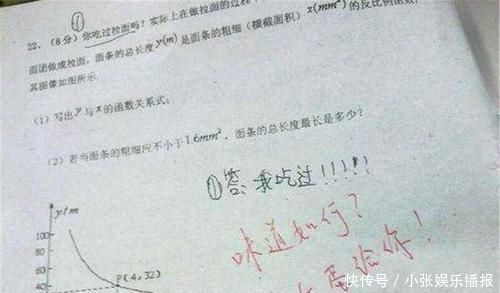 ①
22、(8分) 你吃过拉面吗？实际上在做拉面的过程
面团做成拉面，面条的总长度 y(m) 是面条的粗细（横截面积）x(mm²) 的反比例函数，
其图像如图所示
(1) 写出 y 与 x 的函数关系式；
(2) 若当面条的粗细应不小于 1.6mm²，面条的总长度最长是多少？
①答：我吃过！！！！！
味道如何？
给你！
y/m
100
80
60
40
P(4,32)
快传号 / 小张娱乐播报